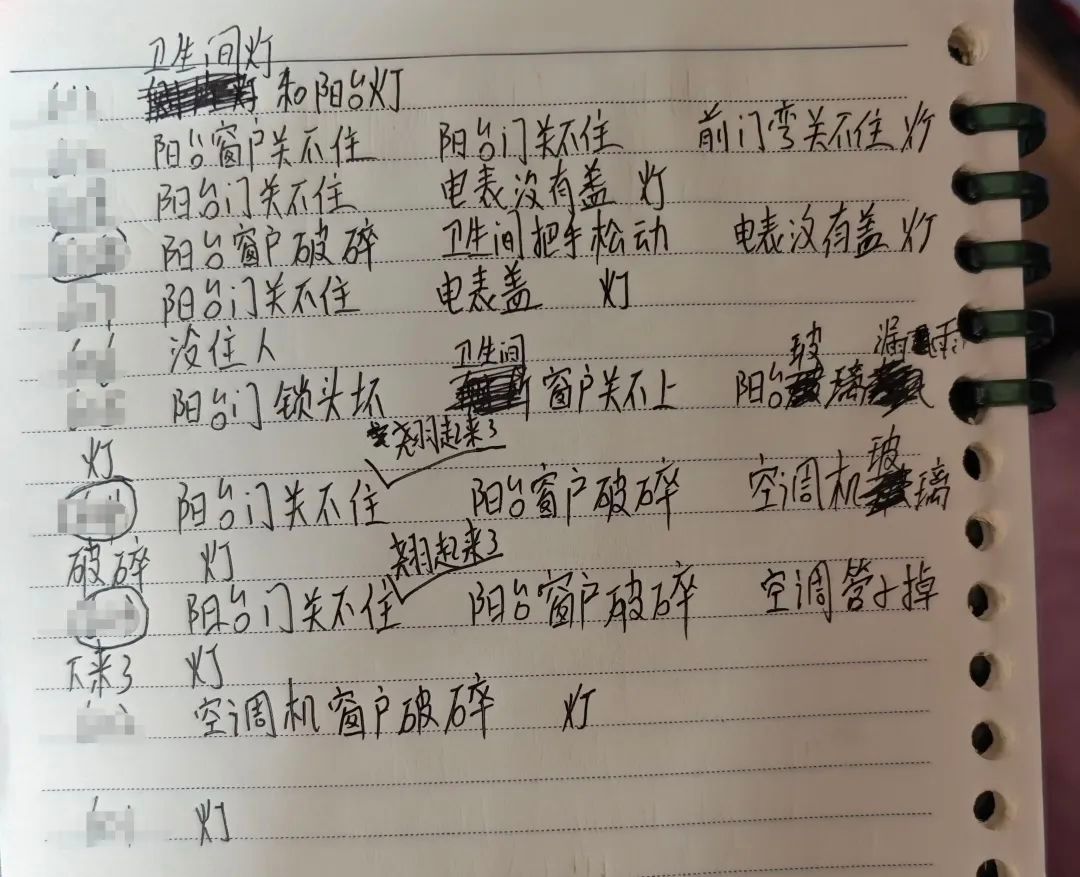 卫生间灯
和阳台灯
阳台窗户关不住 阳台门关不住 前门弯关不住 灯
阳台门关不住 电表没有盖 灯
阳台窗户破碎 卫生间把手松动 电表没有盖 灯
阳台门关不住 电表盖 灯
没住人
卫生间 玻 漏雨
阳台门锁头坏 窗户关不上 阳台璃
灯
翘起来了 玻
阳台门关不住 阳台窗户破碎 空调机璃
破碎 灯
翘起来了
阳台门关不住 阳台窗户破碎 空调管子掉
下来了 灯
空调机窗户破碎 灯
灯